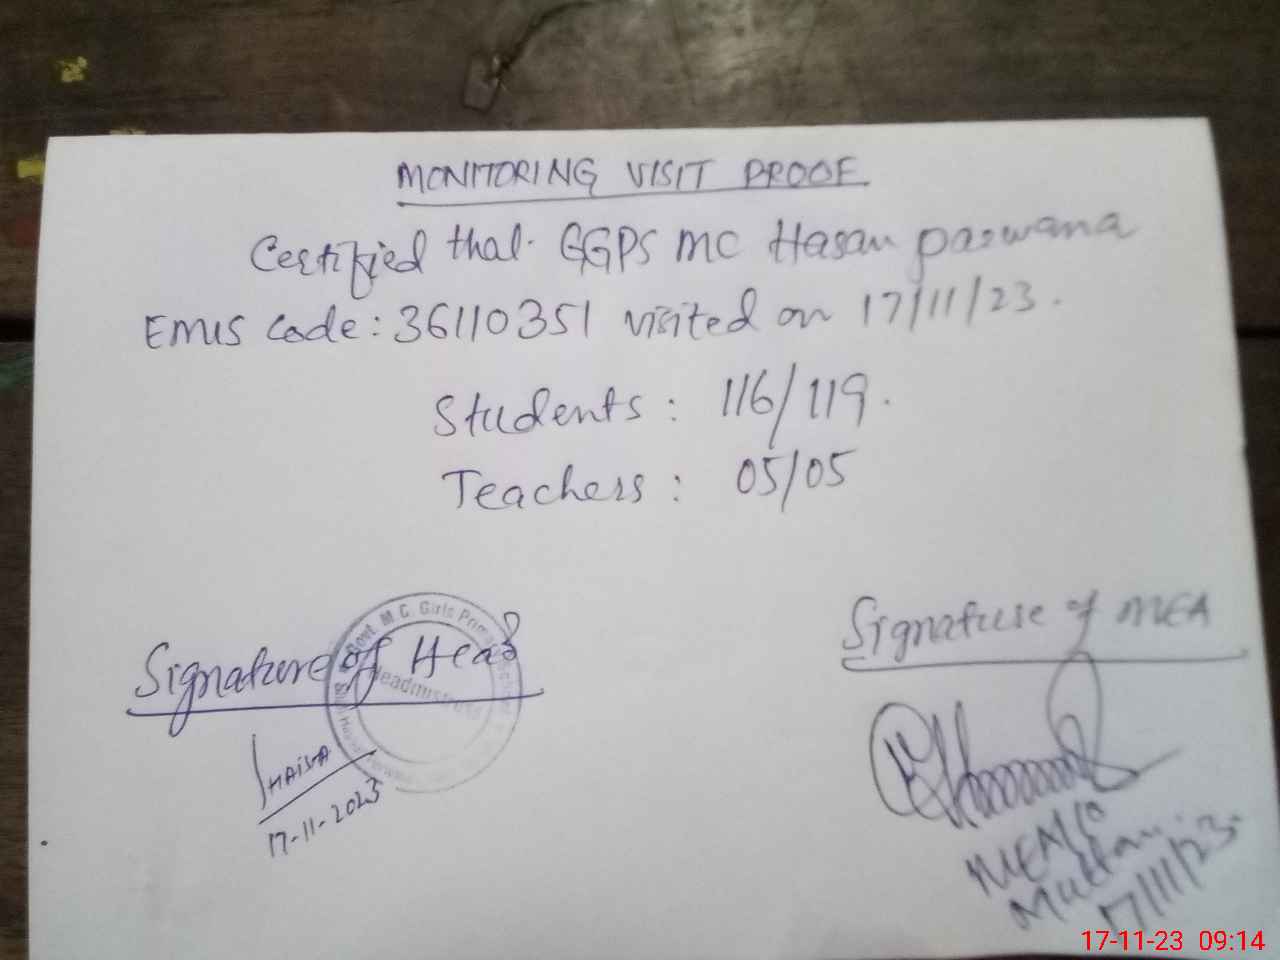 MONITORING VISIT PROOF
Certified that GGPS MC Hasan parwana
EMIS Code: 36110351 visited on 17/11/23.
Students: 116/119.
Teachers: 05/05
Signature of Head
Govt M.C. Girls Primary School
Headmistress
SHAISTA
17-11-2023
Signature of MEA
Multan
17/11/23
17-11-23 09:14